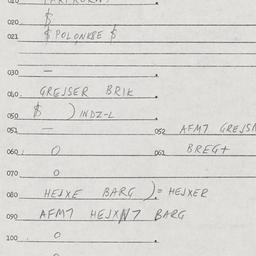 010
020 $
021 $ POLONKEE $
030 —
040. GREJSER BRIK
050 $ ) INDZ-L
051 — 052 AFM7 GREJSM
060. 0 061 BREG+
070 0
080 HEJXE BARG ) = HEJXER
090 AFM7 HEJXN7 BARG
100 0